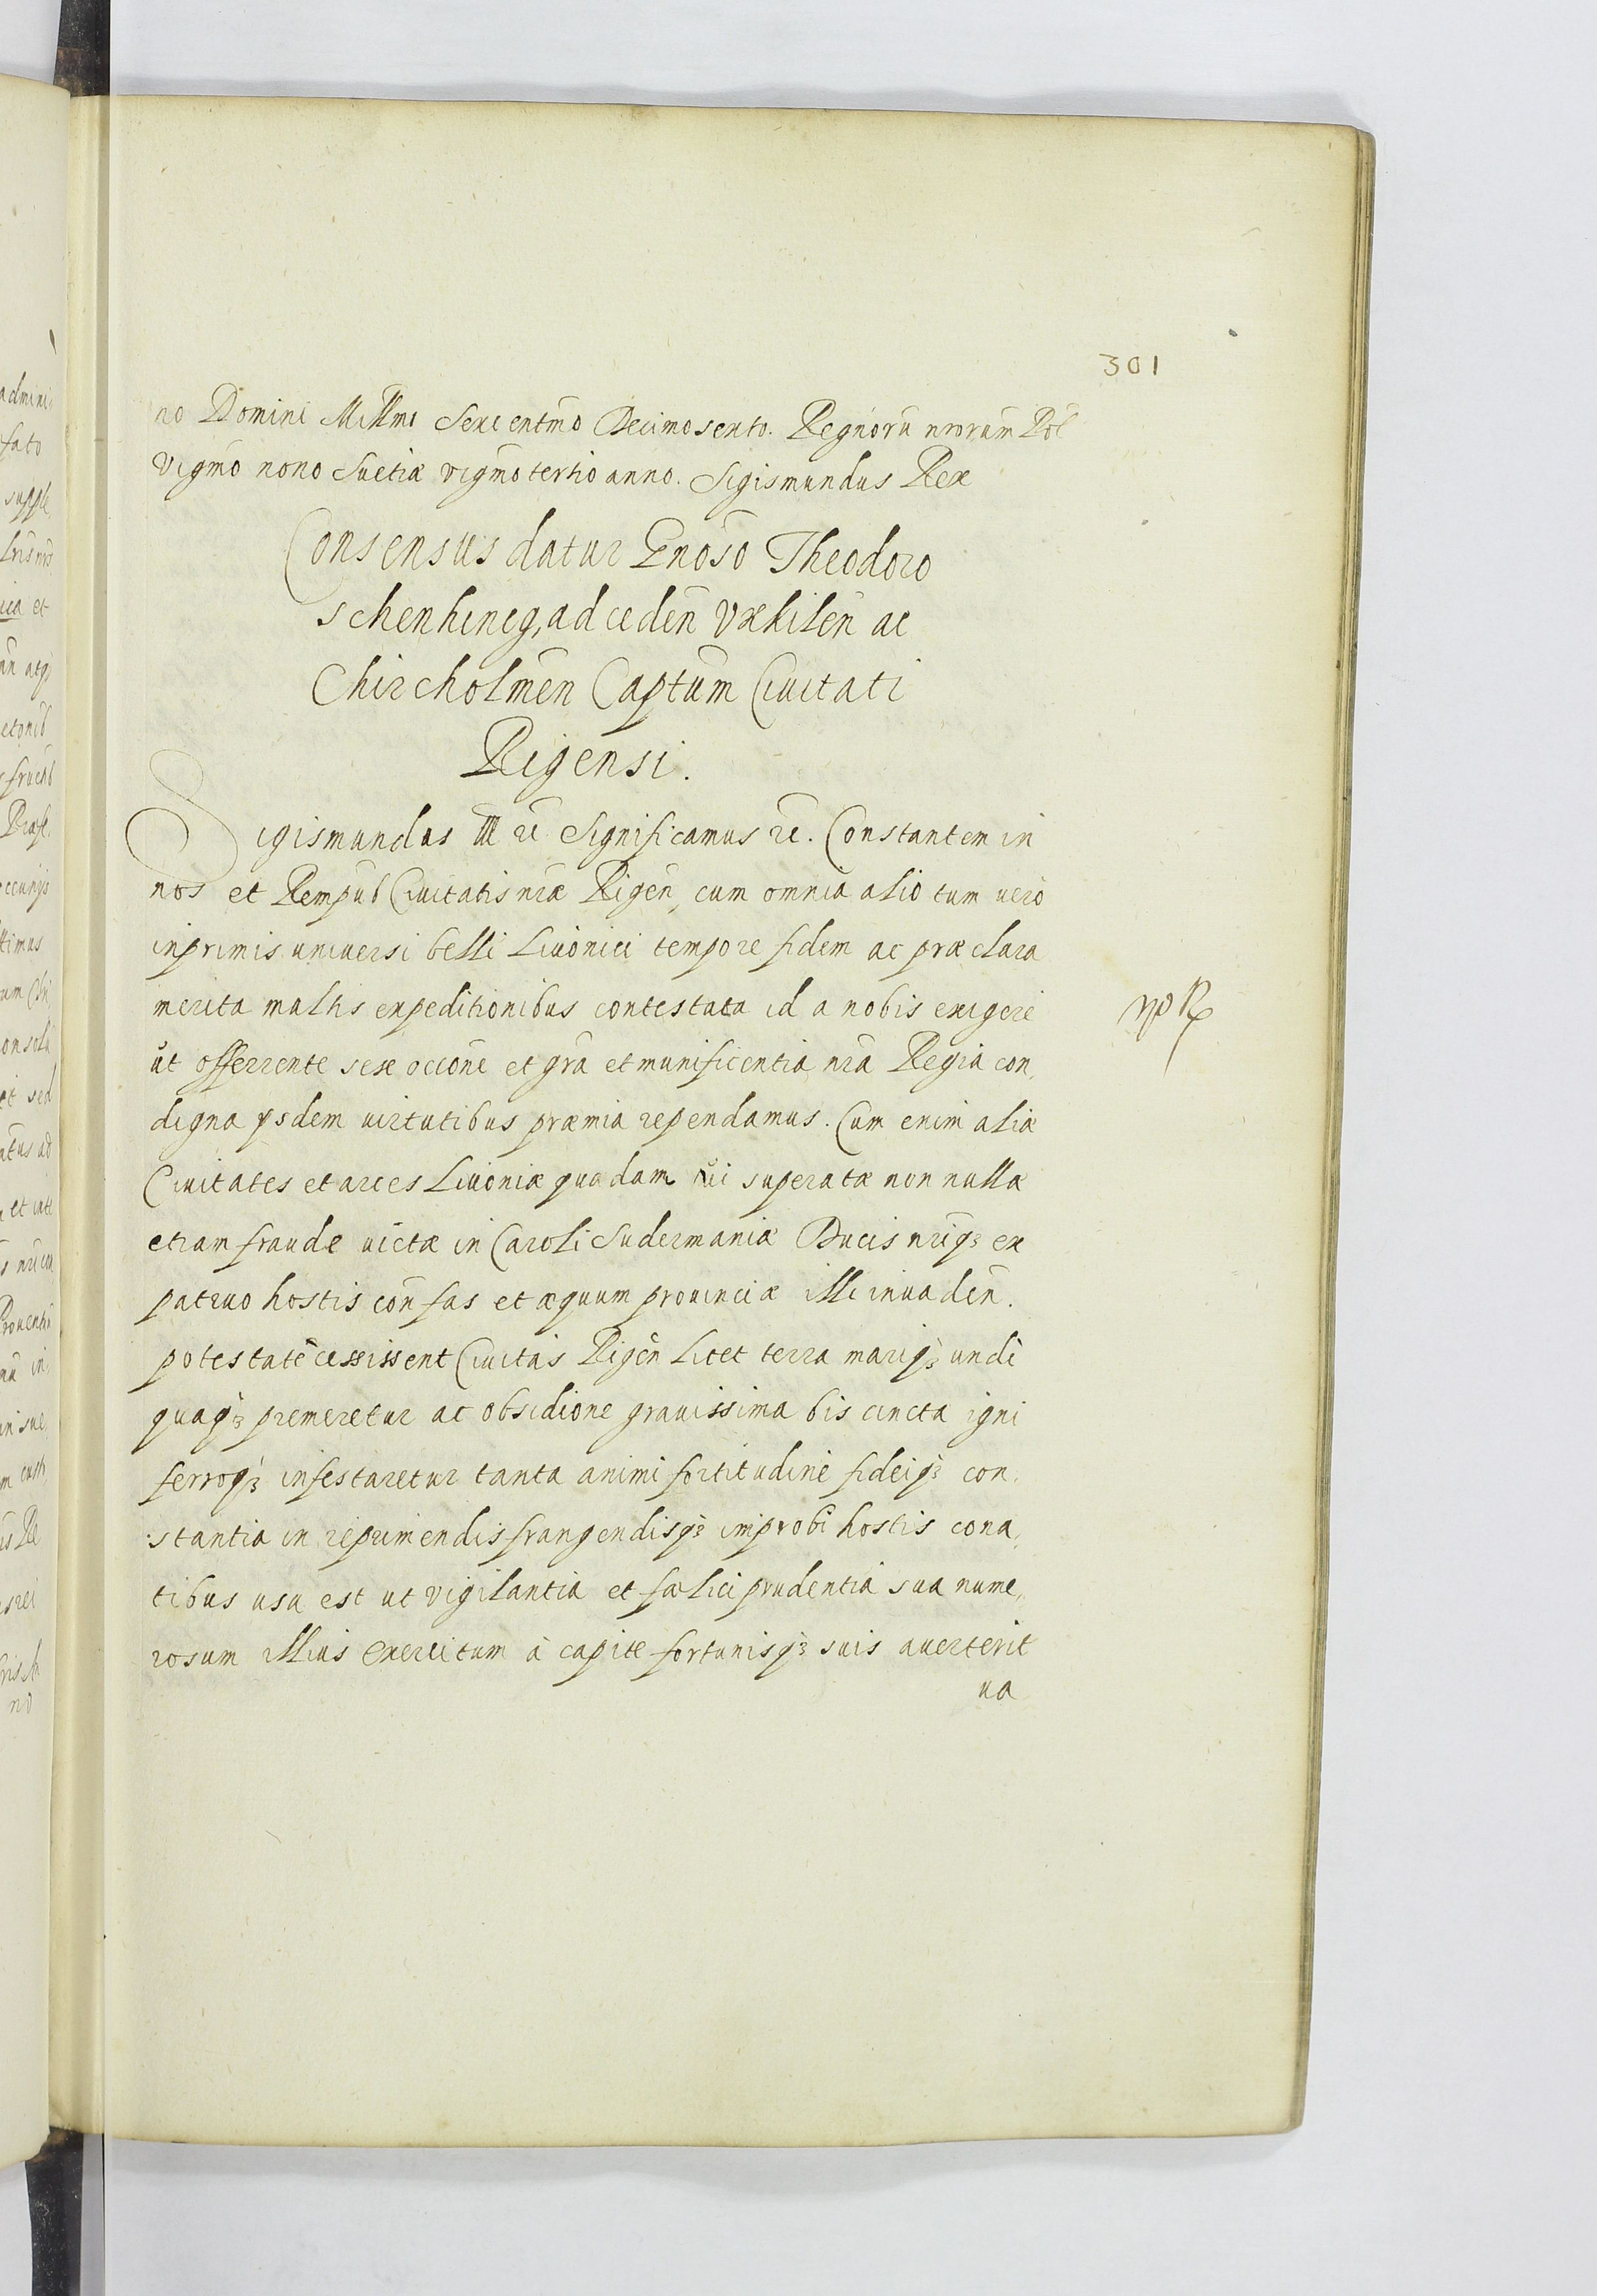 301
no Domini Millmo Sexcentmo Decimosexto. Regnorū nrorum Pol
vigmo nono Suetiæ vigmotertio anno. Sigismundus Rex
Consensus datur Gnōso Theodoro
schenkineg, ad ceden̄ Vxkilen̄ ac
Chircholmen̄ Captum Ciuitati
Rigensi.
Sigismundus III rc Significamus rc. Constantem in
nos et Rempub Ciuitatis nræ Rigen̄, cum omnia alio tum uero
inprimis uniuersi belli Liuonici tempore fidem ac præclara
merita multis expeditionibus contestata id a nobis exigere
ut offerrente sese occōne et grā et munificentia nrā Regia con,
digna ysdem uirtutibus præmia rependamus. Cum enim aliæ
Ciuitates et arces Liuoniæ quædam ui superatæ non nullæ
etiam fraude uictæ in Caroli Sudermaniæ Ducis nriqꝫ ex
patruo hostis con̄ fas et æquum prouinciæ illi inuaden̄.
potestatē cessissent Ciuitas Rigen̄ licet terra mariqꝫ undi
quaqꝫ premeretur ac obsidione grauissima bis cincta igni
ferroqꝫ infestaretur tanta animi fortitudine fideiqꝫ con,
stantia in reprimendis frangendisqꝫ improbi hostis cona,
tibus usa est ut vigilantia et fælici prudentia sua nume,
rosum illius exercitum à capite fortunisqꝫ suis auerterit
ua